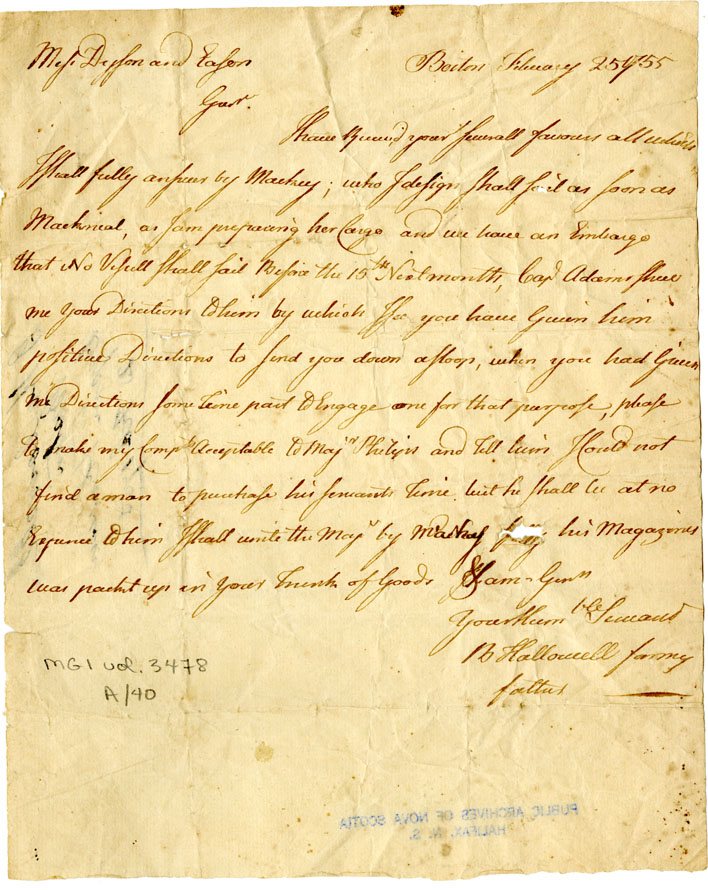 Messrs Dyson and Eason
Boston February 25 1755
Gentn.
I have Receiv'd your severall favours all which
I shall fully answer by Mackay; who I design shall sail as soon as
, as I am prepairing her Cargo and we have an Embargo
that No Vessell shall sail Before the 15th Next month, Capt Adams shew
me your Directions to him by which I see you have Given him
positive Directions to send you down a sloop, when you had Given
me Directions some time past to Engage one for that purpose, please
to make my Compts Acceptable to Majr Philips and tell him I Could not
find a man to purchase his servants time but he shall be at no
Expence to him I shall write the Majr by Mackay his Magazines
was packt up in your Trunk of Goods I am Gentn
Your Humble Servant
B Hallowell for my
father
MG1 vol. 3478
A/40
PUBLIC ARCHIVES OF NOVA SCOTIA
HALIFAX, N. S.